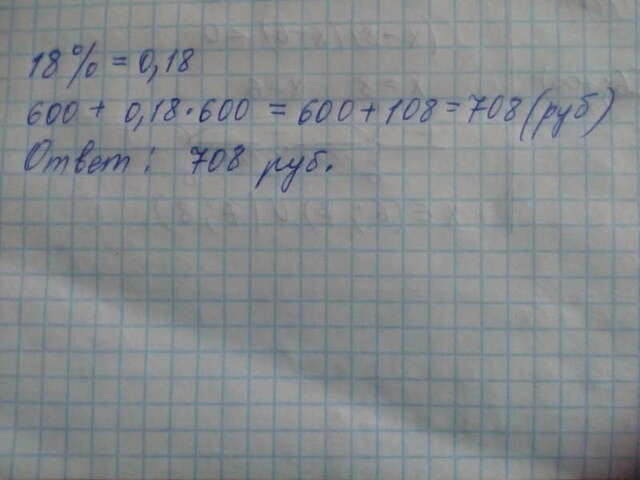 18% = 0,18
600 + 0,18·600 = 600+108 = 708 (руб)
Ответ: 708 руб.